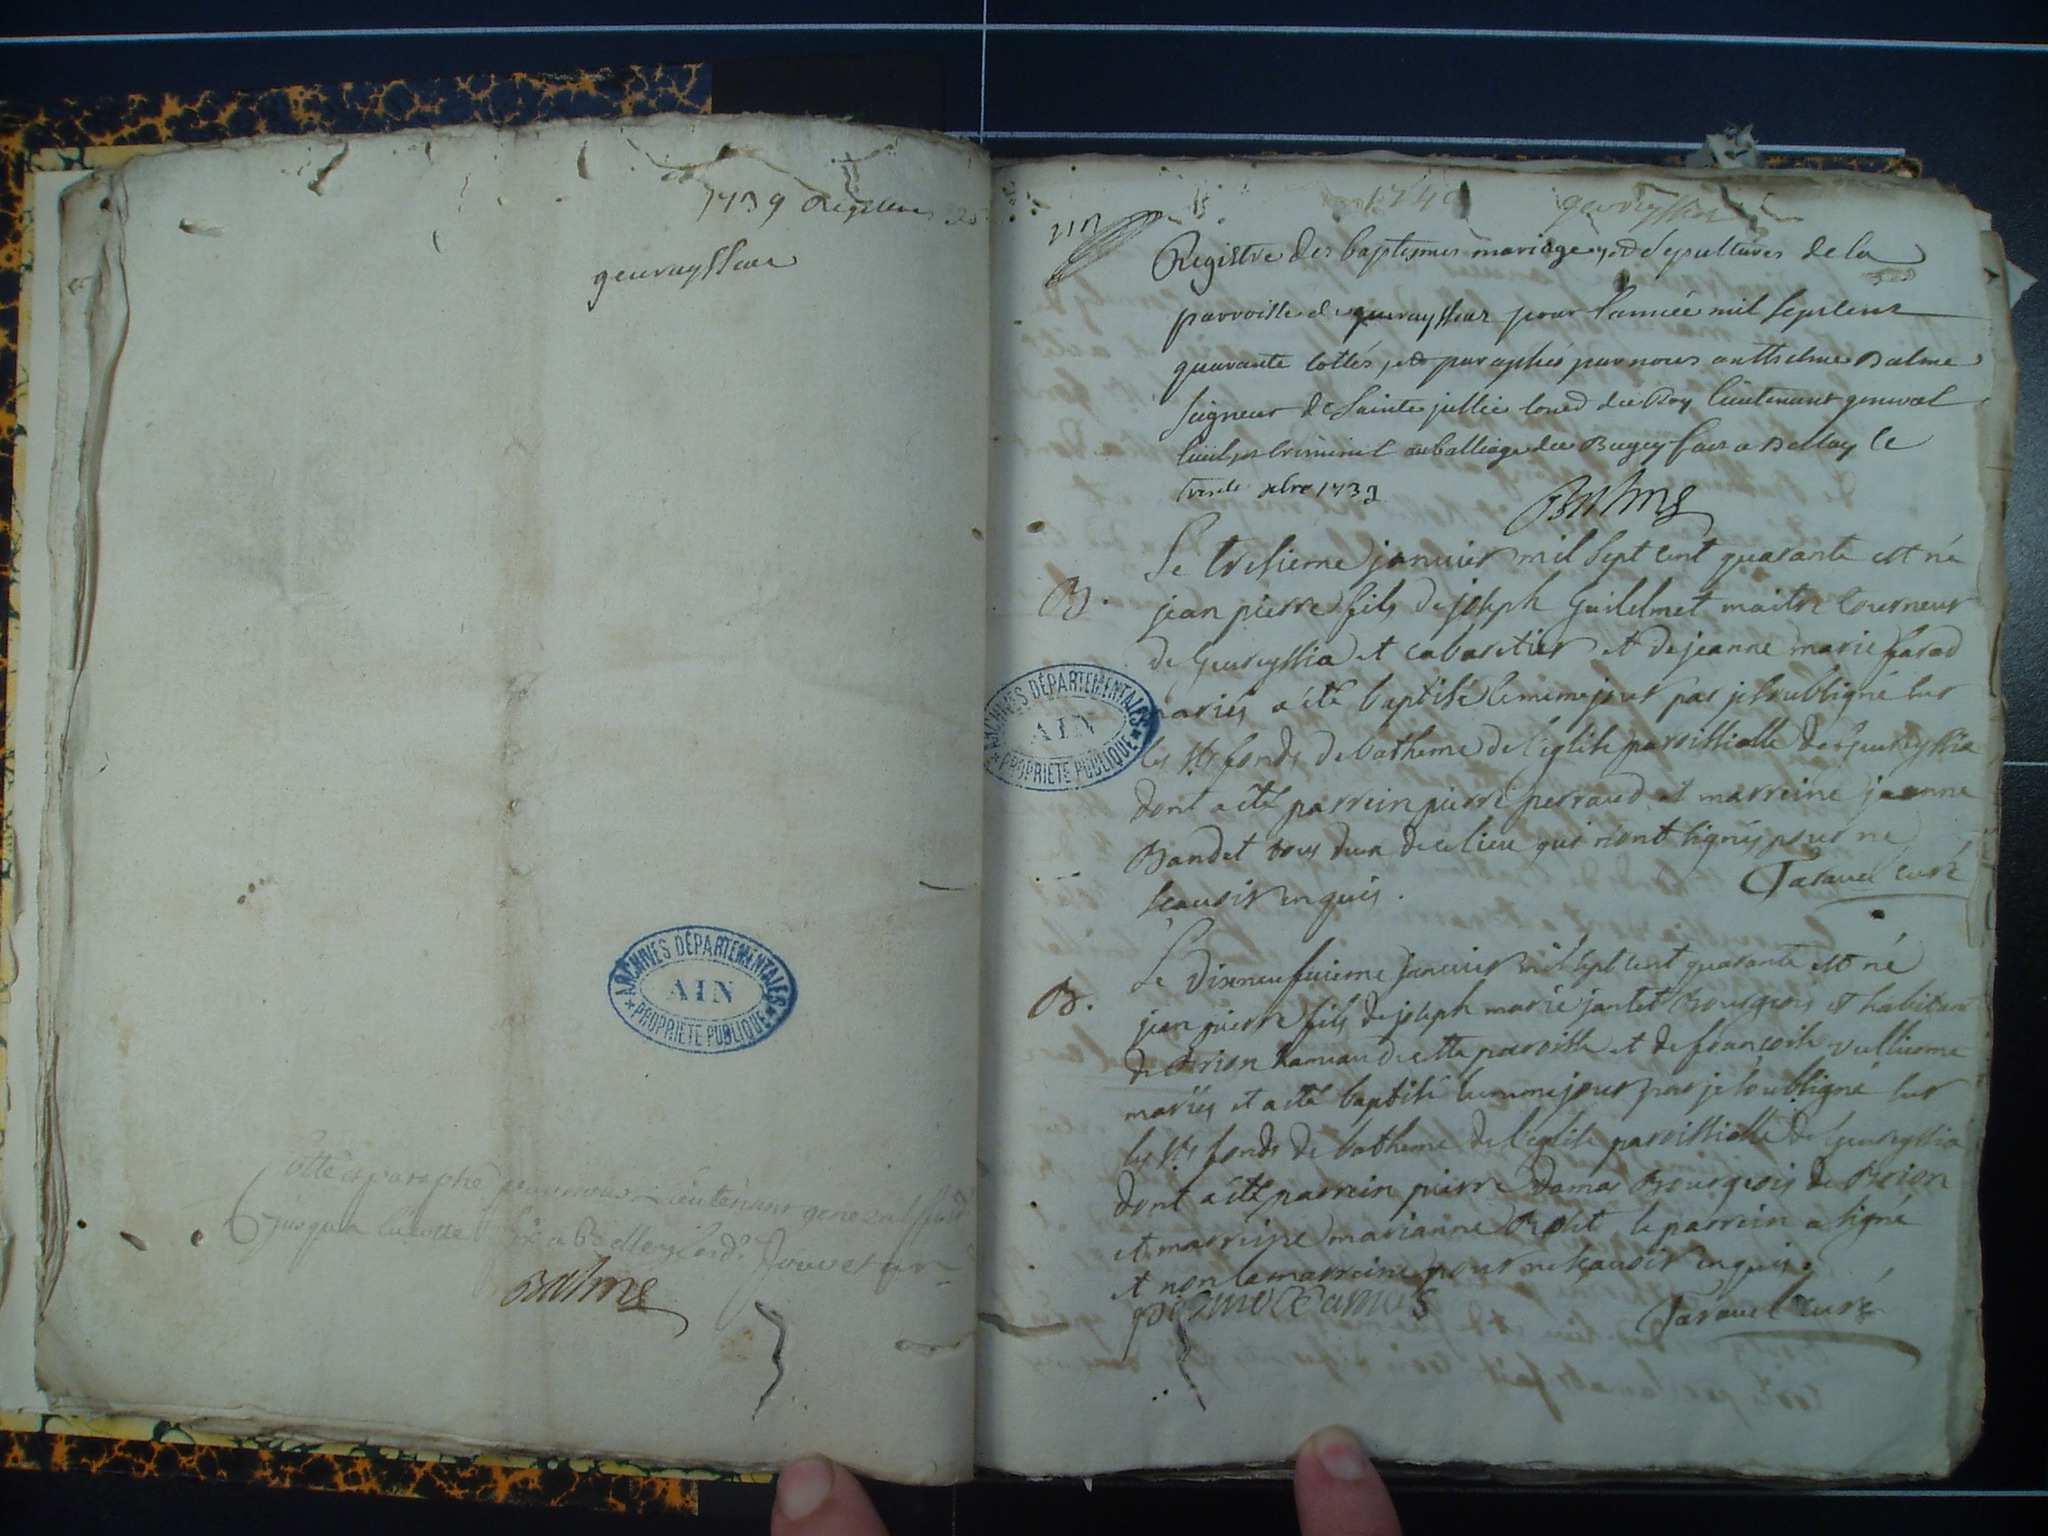 1739
geuraysSiaz
ARCHIVES DÉPARTEMENTALES
AIN
PROPRIÉTÉ PUBLIQUE
Cotté et paraphé par nous Lieutenant general
jusqu'a
Balme
1740 geureyssiaz
Registre des baptesmes mariages, et sepultures de la
parroisse de geuraySSiaz pour l'année mil sept cent
quarante cottés, et paraphés par nous anthelme Balme
Seigneur de Sainte jullie du Roy lieutenant general
civil, et criminel au balliage du Bugey fait a Bellay le
1739
Balme
Le tresieme janvier mil sept cent quarante est né
B.
jean pierre fils de joseph Guilelmet maitre tourneur
de Geureyssia et cabaretier et de jeanne marie farod
mariés a été baptisé le meme jour par je soubsigné sur
ARCHIVES DÉPARTEMENTALES
AIN
PROPRIÉTÉ PUBLIQUE
les Sts fonds de batheme de l'eglise paroissialle de Geureyssia
dont a été parrein pierre perraud et marreine jeanne
Bandet tous deux de ce lieu qui n'ont signés pour ne
scauoir enquis.
Tarauel curé
Le dixneufuieme janvier mil sept cent quarante est né
B.
jean pierre fils de joseph marie jantet Bourgeois et habitant
de Brion hameau de cette paroisse et de françoise vullierme
mariés et a été baptisé le meme jour par je soubsigné sur
les Sts fonds de batheme de l'eglise paroissialle de Geureyssia
dont a été parrein pierre Damas Bourgeois de Brion
et marreine marianne le parrein a signé
et non la marreine pour ne scauoir enquis.
Damas
Tarauel curé